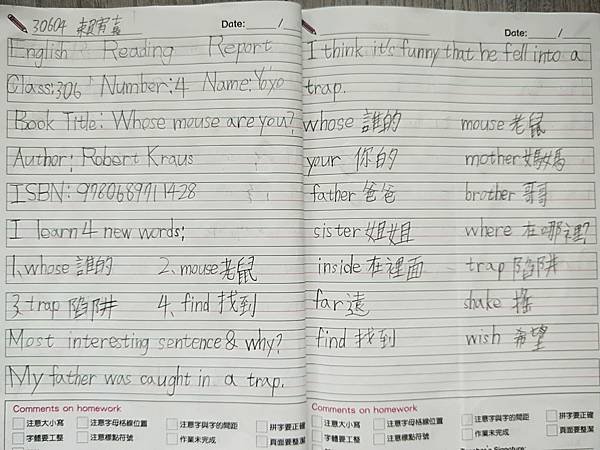 30604 賴宥嘉
Date: / /
English Reading Report
Class: 306 Number: 4 Name: Yoyo
Book Title: Whose mouse are you?
Author: Robert Kraus
ISBN: 9780689711428
I learn 4 new words:
1、whose 誰的 2、mouse老鼠
3、trap 陷阱 4、find 找到
Most interesting sentence & why?
My father was caught in a trap.
Comments on homework
注意大小寫 注意字母格線位置 注意字與字的間距 拼字要正確
字體要工整 注意標點符號 作業未完成 頁面要整潔
Date: /
I think it's funny that he fell into a
trap.
whose 誰的 mouse 老鼠
your 你的 mother 媽媽
father 爸爸 brother 哥哥
sister 姐姐 where 在哪裡?
inside 在裡面 trap 陷阱
far 遠 shake 搖
find 找到 wish 希望
Comments on homework
注意大小寫 注意字母格線位置 注意字與字的間距 拼字要正確
字體要工整 注意標點符號 作業未完成 頁面要整潔
Teacher's Signature: